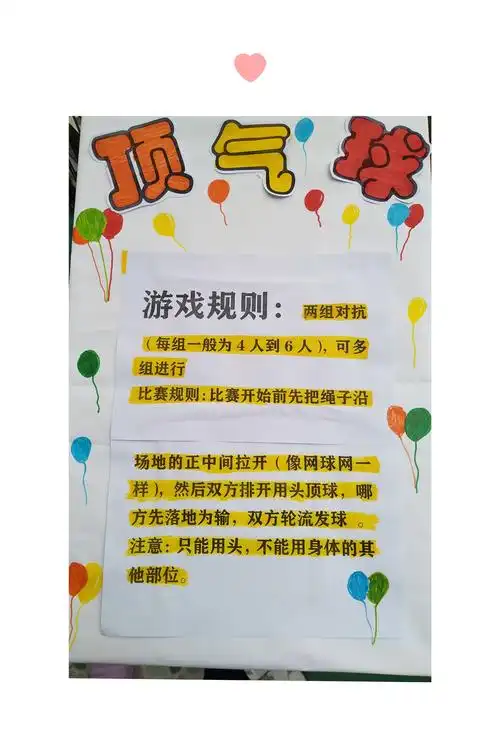 顶气球
游戏规则：两组对抗
（每组一般为4人到6人），可多
组进行
比赛规则：比赛开始前先把绳子沿
场地的正中间拉开（像网球网一
样），然后双方排开用头顶球，哪
方先落地为输，双方轮流发球 。
注意：只能用头，不能用身体的其
他部位。